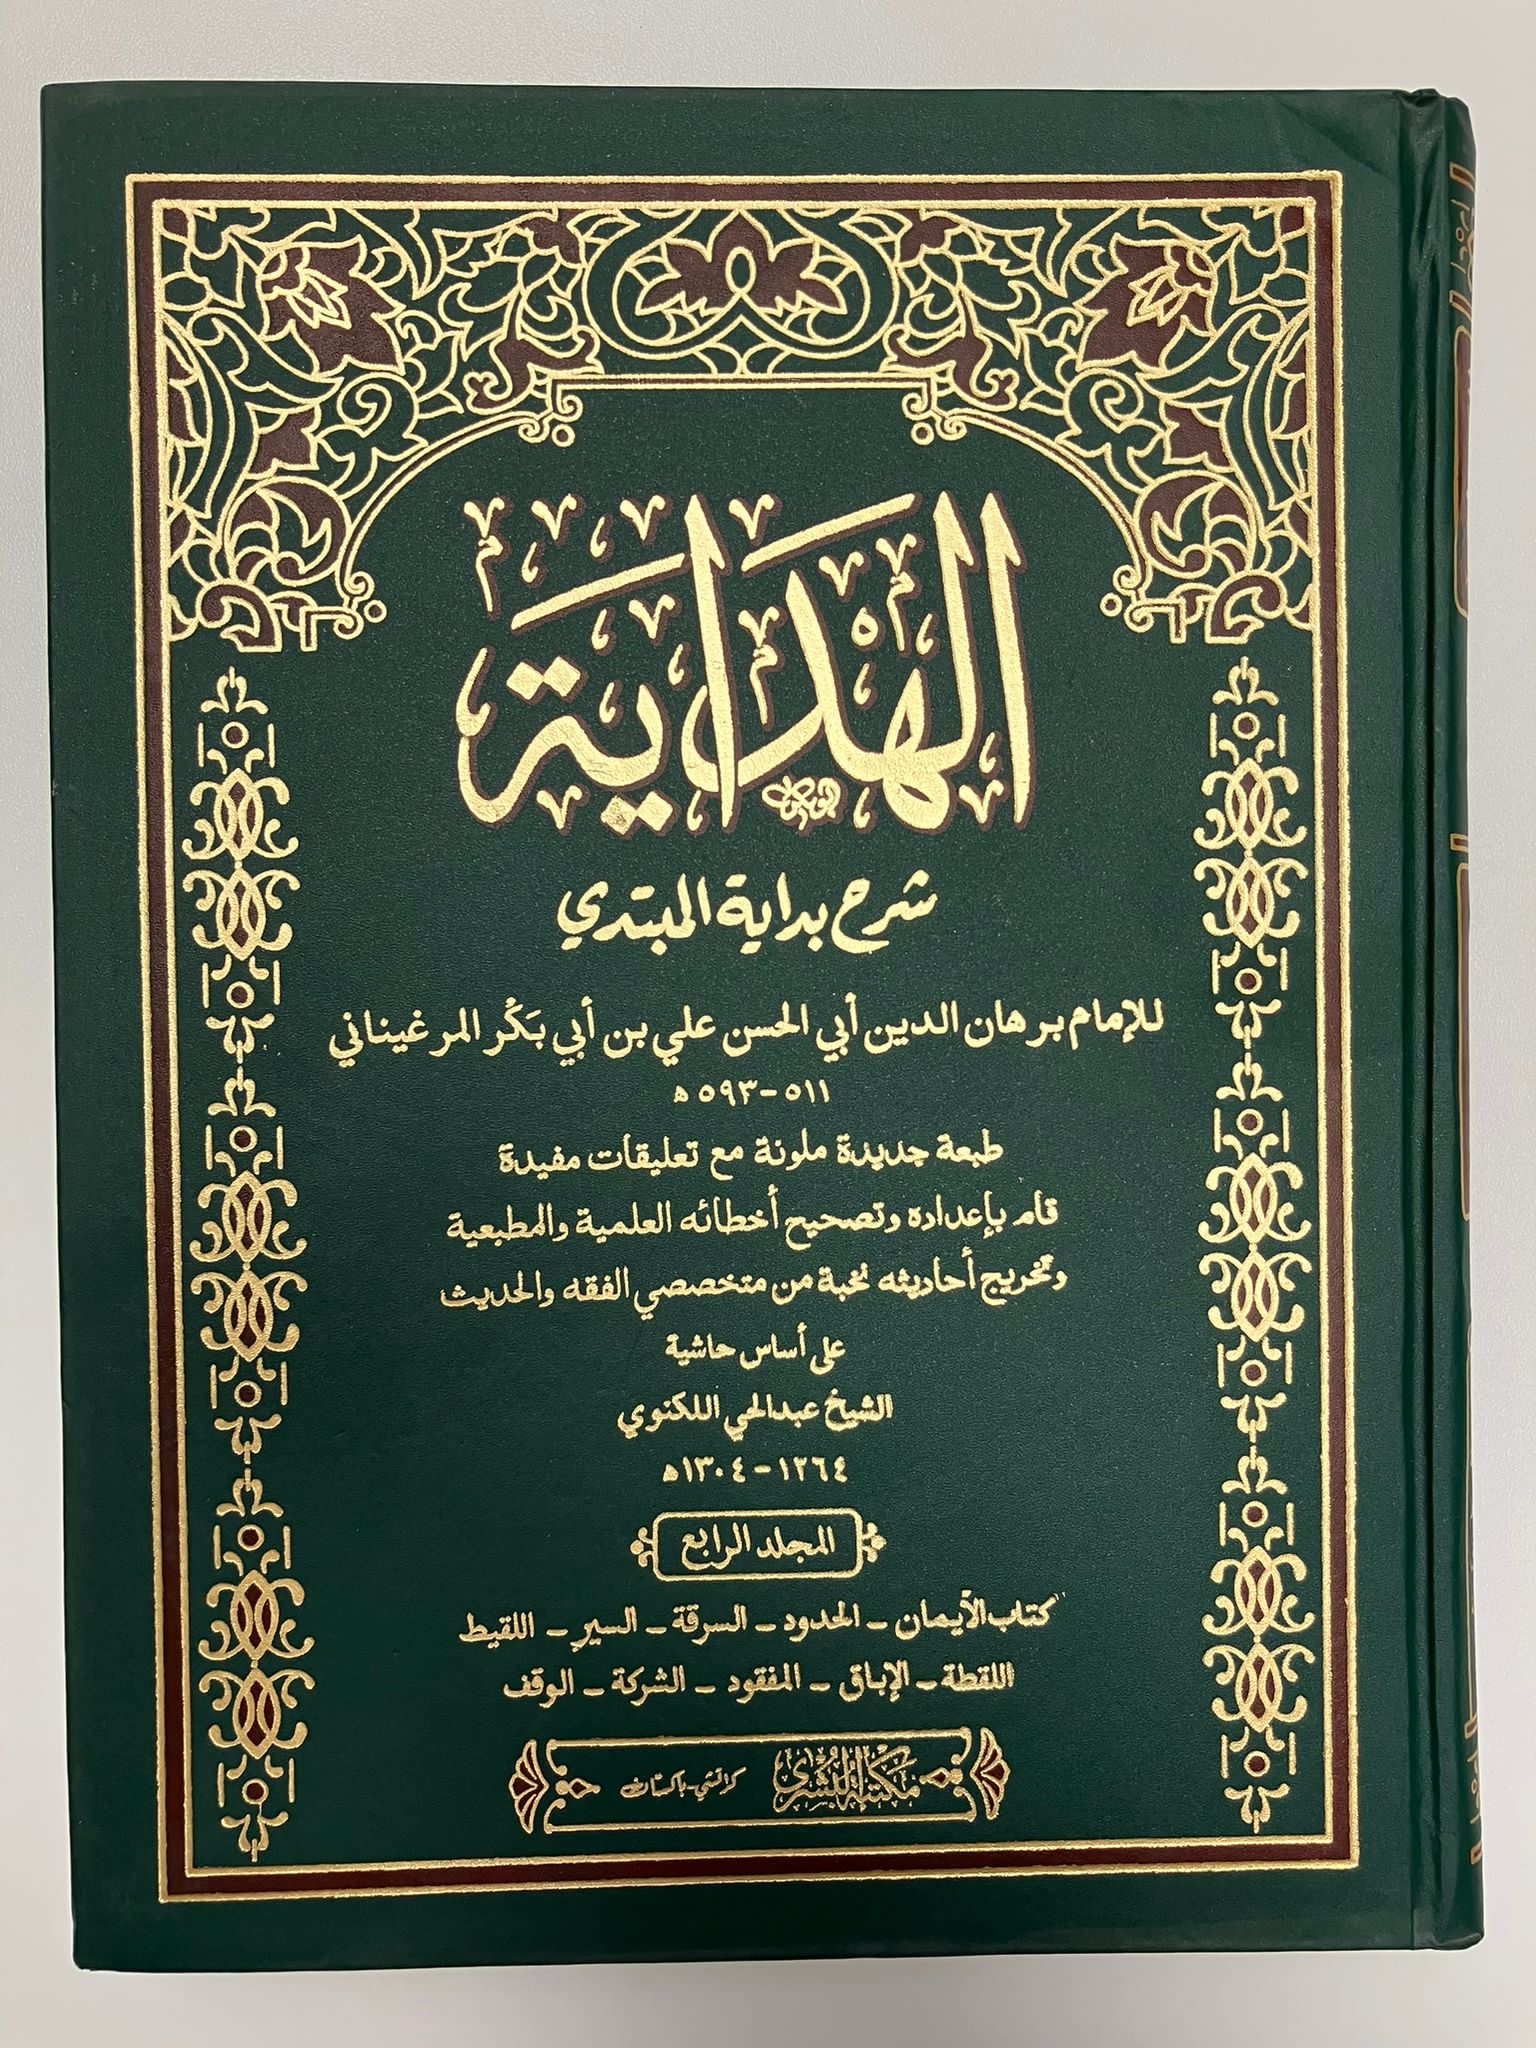 الهداية
شرح بداية المبتدي
للإمام برهان الدين أبي الحسن علي بن أبي بَكْر المرغيناني
٥١١-٥٩٣ ه
طبعة جديدة ملونة مع تعليقات مفيدة
قام بإعداده وتصحيح أخطائه العلمية والمطبعية
وتخريج أحاديثه نخبة من متخصصي الفقه والحديث
على أساس حاشية
الشيخ عبدالحي اللكنوي
١٢٦٤-١٣٠٤ه
المجلد الرابع
كتاب الأيمان - الحدود - السرقة - السير - اللقيط
اللقطة - الإباق - المفقود - الشركة - الوقف
مكتبة البشرى كراتشي-باكستان